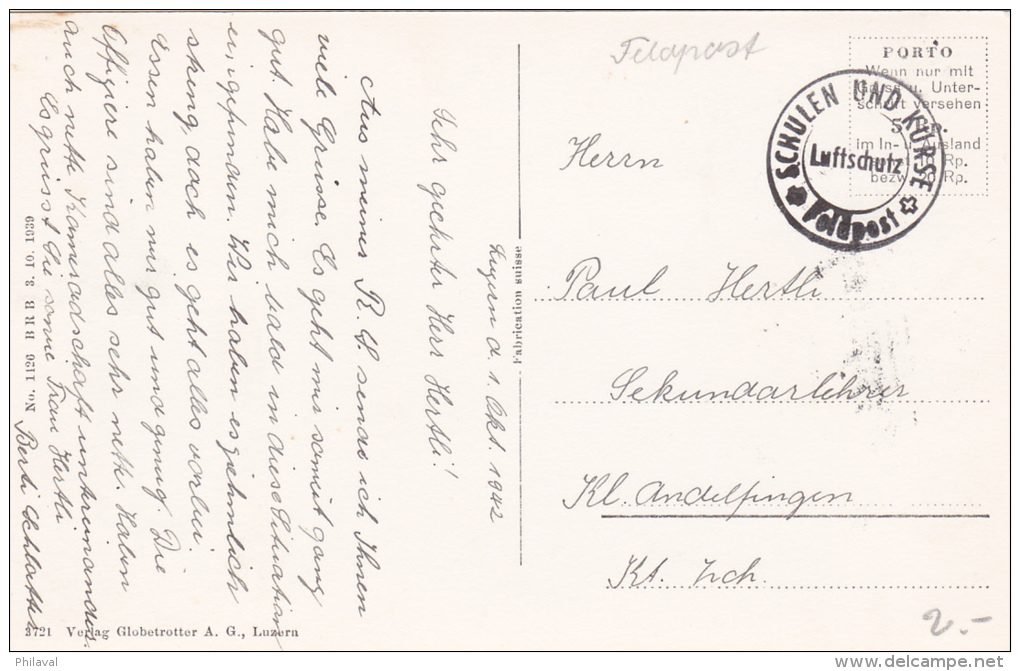 Luzern d. 1. Okt. 1942
Sehr geehrter Herr Hertli!
Aus meiner R. S. sende ich Ihnen
viele Grüsse. Es geht mir soweit ganz
gut. Habe mich bald in diese Situation
eingefunden. Wir haben es ziemlich
streng, doch es geht alles vorbei.
Essen haben wir gut und genug. Die
Offiziere sind alles sehr nette. Haben
auch nette Kameradschaft untereinander.
Es grüsst Sie sowie Frau Hertli
Berti Schlatter
No. 1126 B R B 3. 10. 1939
3721 Verlag Globetrotter A. G., Luzern
Fabrication suisse
Feldpost
PORTO
Wenn nur mit
Gruss u. Unter-
schrift versehen
5 Rp.
im In- u. Ausland
Rp.
bezw. 20 Rp.
SCHULEN UND KURSE
Luftschutz
Feldpost
Herrn
Paul Hertli
Sekundarlehrer
Kl. Andelfingen
Kt. Zch.
2.-
Philaval
delcampe.net